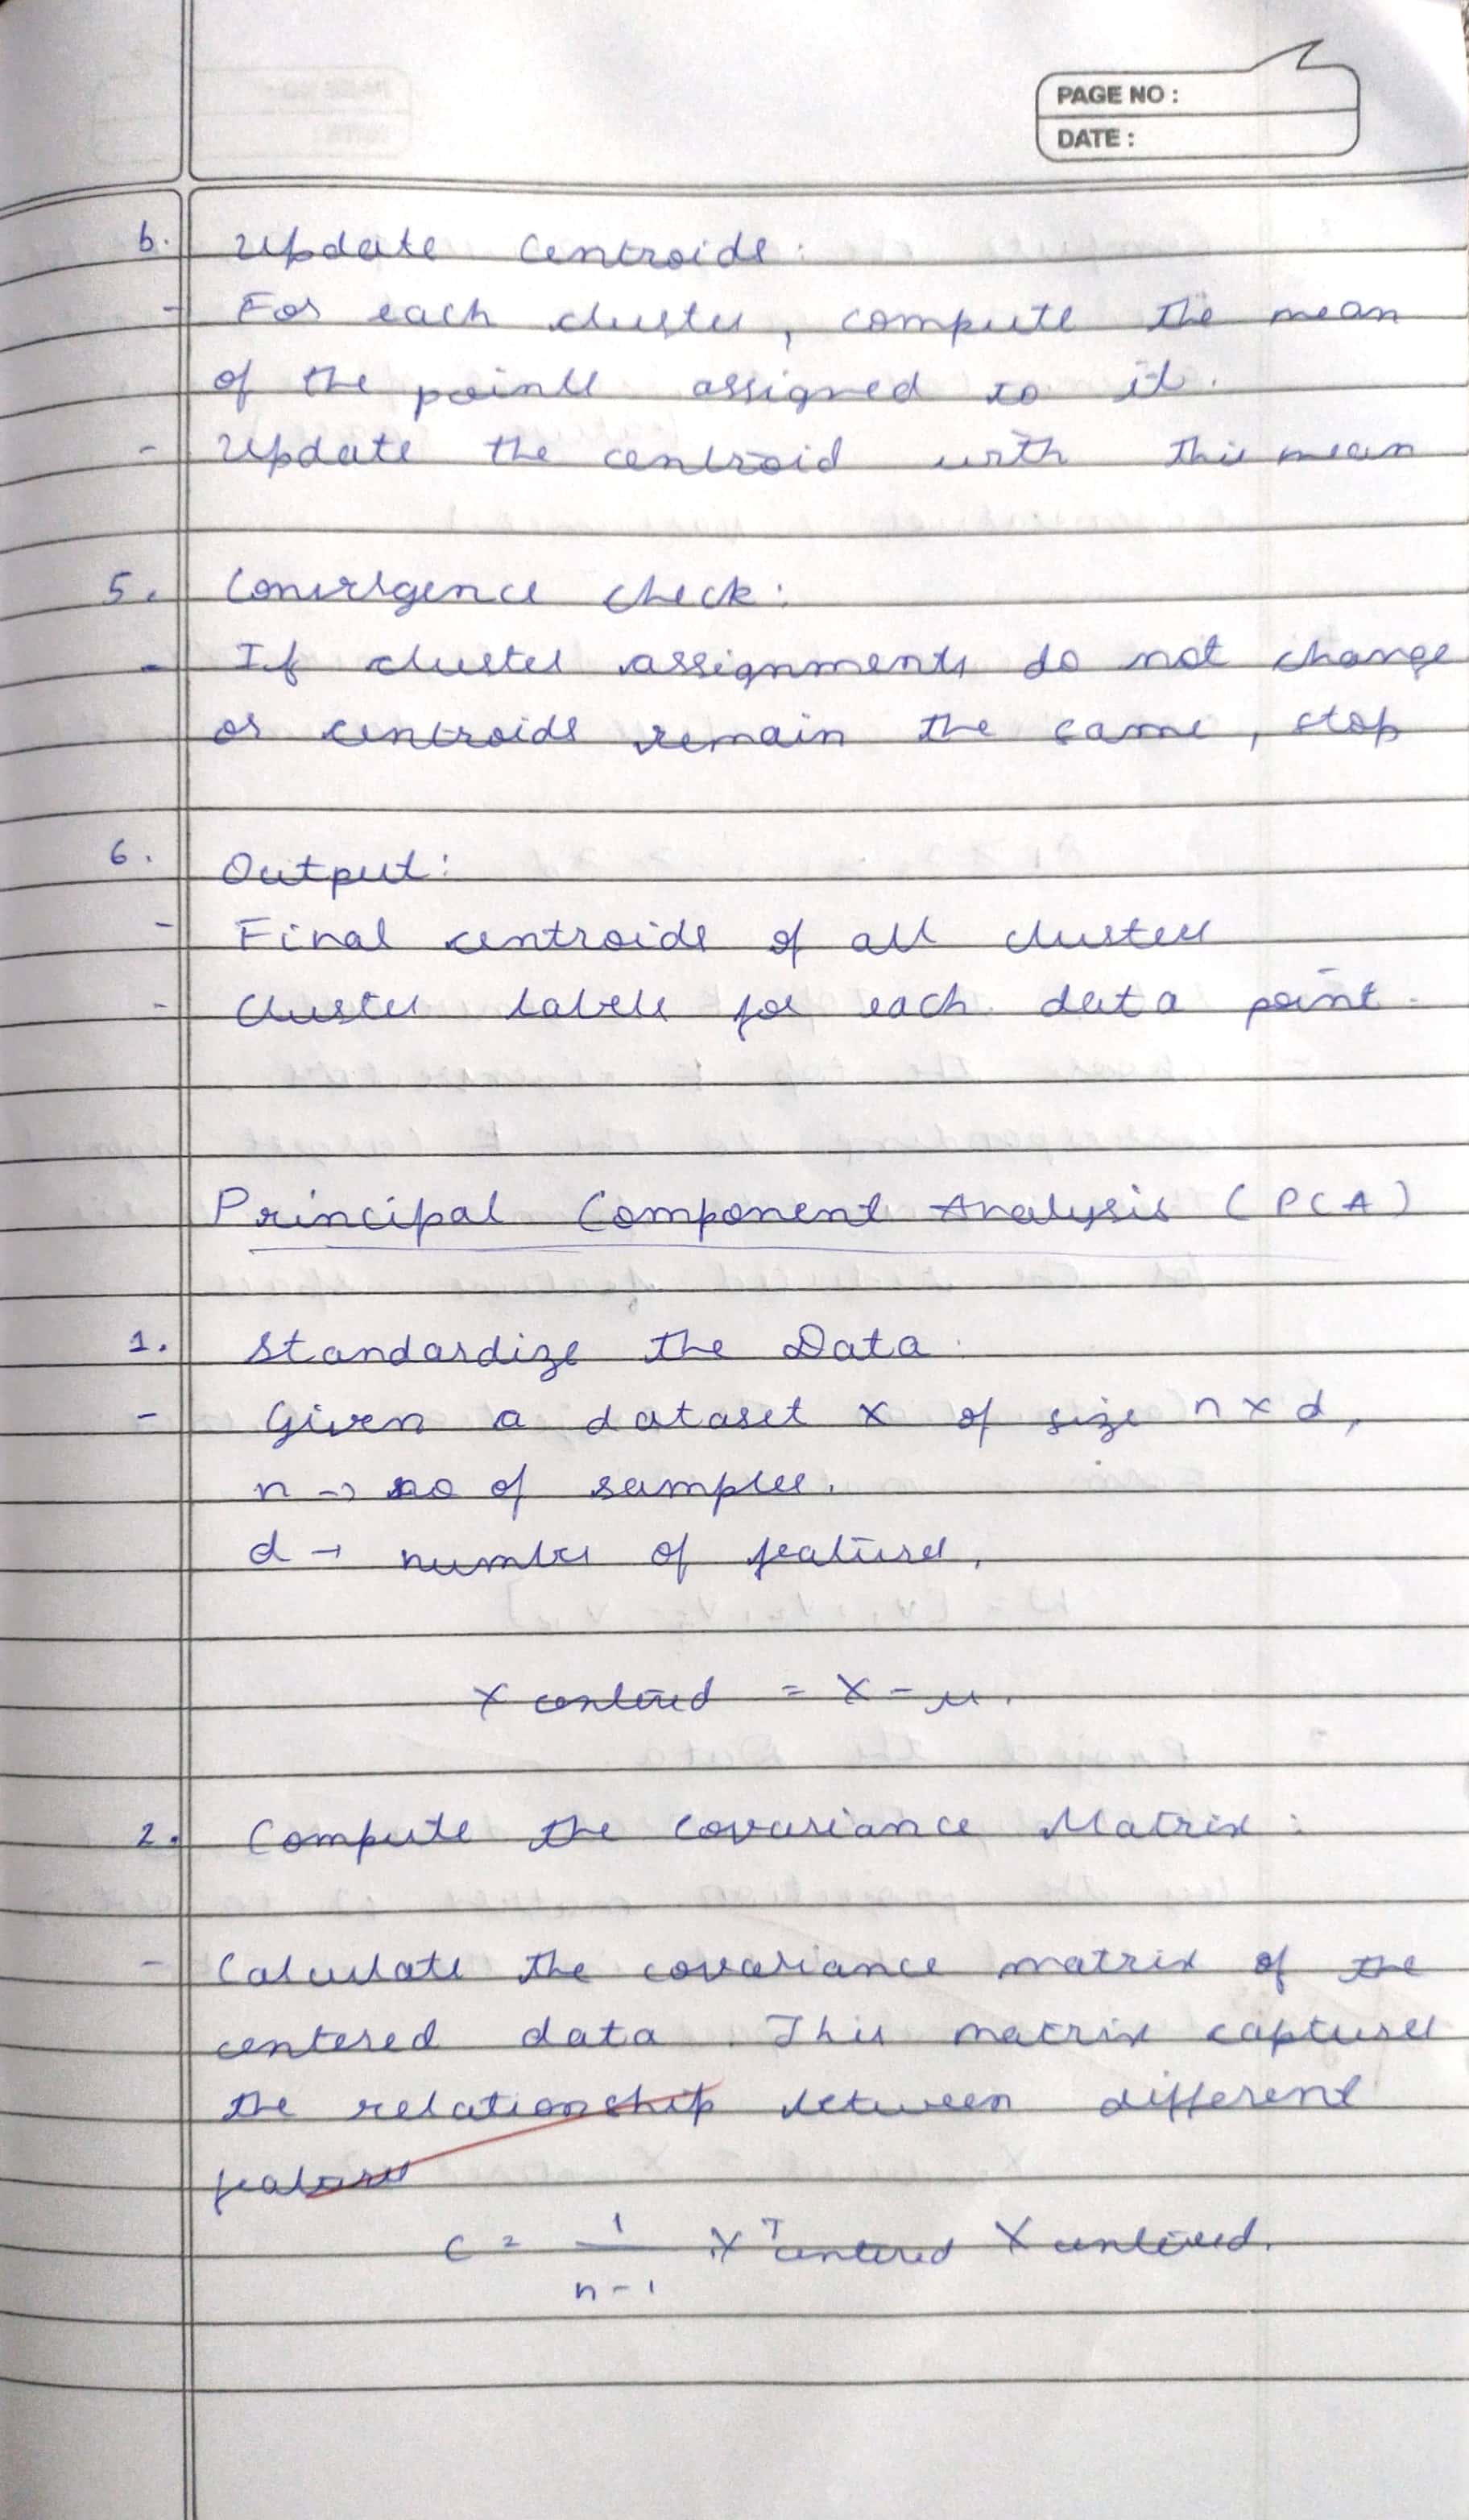 PAGE NO :
DATE :
b. Update Centroids:
- For each cluster, compute the mean
of the points assigned to it.
- Update the centroid with this mean
5. Convergence check:
- If cluster assignments do not change
or centroids remain the same, stop
6. Output:
- Final centroids of all clusters
- Cluster labels for each data point.
Principal Component Analysis (PCA)
1. Standardize the Data.
- Given a dataset X of size n x d,
n → no of samples.
d → number of features.
X centered = X - μ.
2. Compute the Covariance Matrix:
- Calculate the covariance matrix of the
centered data. This matrix captures
the relationship between different
features
C = 1/n-1 X^T centered X centered.